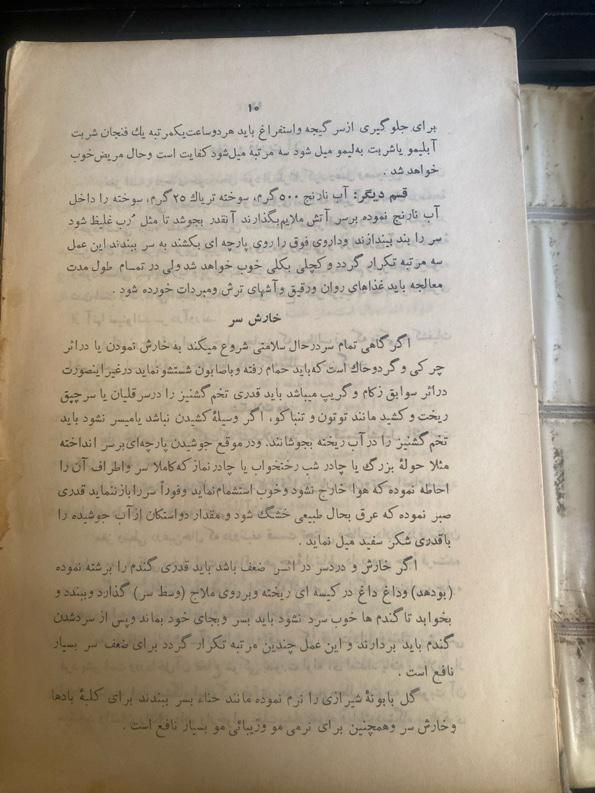 ۱۰
برای جلوگیری ازسر گیجه واستفراغ باید هردوساعت یکمرتبه یك فنجان شربت
آبلیمو یاشربت به‌لیمو میل شود سه مرتبه میل‌شود کفایت است وحال مریض‌خوب
خواهدشد .
قسم دیگر: آب نارنج ۵۰۰ گرم، سوخته تریاك ۲۵ گرم، سوخته را داخل
آب نارنج نموده برسر آتش ملایم‌بگذارند آنقدر بجوشد تا مثل رب غلیظ شود
سر را بند بیندازند وداروی فوق را روی پارچه ای بکشند به سر ببندند این عمل
سه مرتبه تکرار گردد و کچلی بکلی خوب خواهد شد ولی در تمام طول مدت
معالجه باید غذاهای روان ورقیق و آشهای ترش ومبردات خورده شود .
خارش سر
اگر گاهی تمام سر درحال سلامتی شروع میکند به خارش نمودن یا دراثر
چرکی و گردوخاك است که‌باید حمام رفته و باصابون شستشو نماید درغیر اینصورت
دراثر سوابق زکام و گریپ میباشد باید قدری تخم گشنیز را درسر قلیان یا سرچپق
ریخت و کشید مانند توتون و تنباکو، اگر وسیلهٔ کشیدن نباشد یامیسر نشود باید
تخم گشنیز را در آب ریخته بجوشانند. ودرموقع جوشیدن پارچه‌ای برسر انداخته
مثلا حولهٔ بزرگ یا چادر شب رختخواب یا چادرنماز که کاملا سر واطراف آن را
احاطه نموده که هوا خارج نشود وخوب استشمام نماید وفوراً سر را بازننماید قدری
صبر نموده که عرق بحال طبیعی خشک شود و مقدار دواستکان از آب جوشیده را
باقدری شکر سفید میل نماید .
اگر خارش و دردسر در اثر ضعف باشد باید قدری گندم را برشته نموده
(بودهد) وداغ داغ در کیسه ای ریخته وبرروی ملاج (وسط سر) گذارد وببندد و
بخوابد تا گندم ها خوب سرد نشود باید بسر وبجای خود بماند وپس از سردشدن
گندم باید بردارند و این عمل چندین مرتبه تکرار گردد برای ضعف سر بسیار
نافع است .
گل بابونهٔ شیرازی را نرم نموده مانند حناء بسر ببندند برای کلیهٔ بادها
وخارش سر وهمچنین برای نرمی مو وزیبائی مو بسیار نافع است .